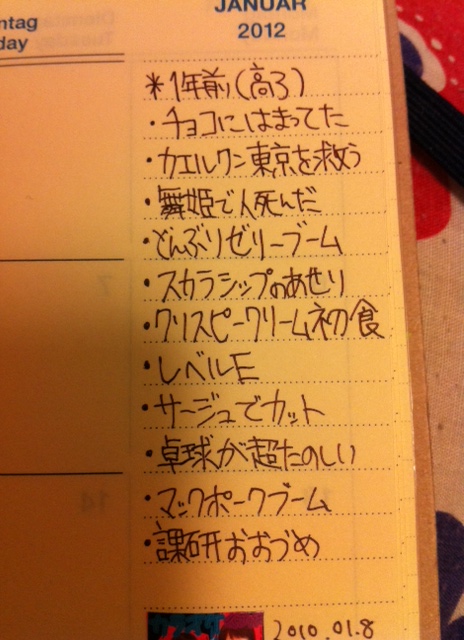 ntag
day
JANUAR
2012
*1年前(高3)
・チョコにはまってた
・カエルクン東京を救う
・舞姫で人死んだ
・どんぶりゼリーブーム
・スカラシップのあせり
・クリスピークリーム初の食
・レベルE
・サージュでカット
・卓球が超たのしい
・マックポークブーム
・課研おおづめ
2010.01.8